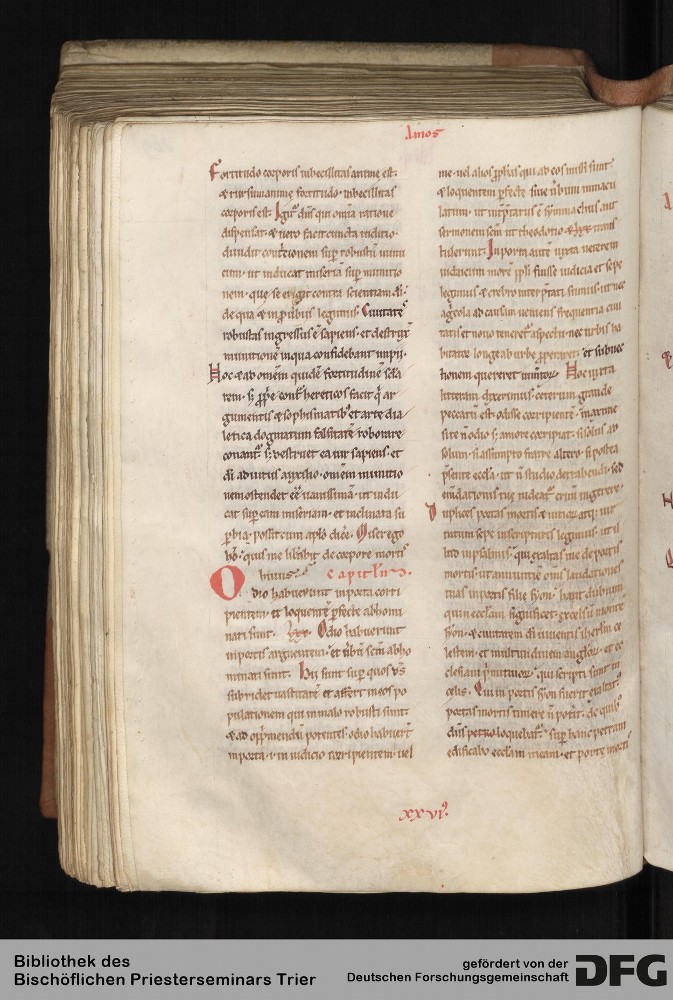 Amos
Fortitudo corporis inbecillitas anime est.
& rursum anime fortitudo. inbecillitas
corporis est. Igit̄ dn̄s qui om̄ia ratione
dispensat. & uero facit cuncta iudicio.
diuidit
cim. ut inducat miseriā sup̄ munitio
nem. que se erigit contra scientiam dī.
de qua & in p̄uerbiis legimus. Ciuitates
robustas ingressus ē sapiens. et destruxit
munitionē in qua confidebant impii.
Hoc & ab omēm quidē fortitudinē scl̄a
rem. s; p̄prie cont̄ hereticos facit. q̄ ar
gumentis & sophismatib; et arte dia
letica dogmatum falsitatē roborare
conant̄. s; destruet ea uir sapiens. et
dī adiutus auxilio. omēm munitio
nem ostendet eē uanissimā. ut indu
cat sup̄ eam miseriam. et inclinata su
p̄bia. possit cum apl̄o dicē. Miser ego
hō. quis me lib̄abit de corpore mortis
huius. Capitlm̄
Odio habuerunt in porta corri
pientem. et loquentē p̄fecte abhomi
nati sunt. lxx. Odio habuerunt
in portis arguentem. et ūbū scm̄ abho
minati sunt. Hii sunt sup̄ quos dn̄s
subridet uastitatē et affert in eos po
pulationem qui in malo robusti sunt.
& ad opp̄mendū potentes. odio habuer̄t
in porta. i. in iudicio corripientem. uel
me. uel alios p̄phās qui ab eos missi sunt
& loquentem p̄fecte siue ūbum inmacu
latum. ut int̄p̄tatus ē symmachus. aut
sermonem scm̄ ut theodotio & lxx
tulerunt. In porta autē iuxta ueterem
iudaicum morē ppl̄i fuisse iudicia et sepe
legimus & crebro interp̄tati sumus. ut nec
ag̃cola ad causam ueniens frequentia ciui
tatis et nouo terreret̄ aspectu. nec urbis ha
bitator longe ab urbe p̄peraret. et subuec
tionem quereret iumentor̄. Hoc iuxta
litteram dixerimus. Ceterum grande
peccatū est odisse corripientē. maxime
si te n̄ odio s; amore corripiat. si solus ad
solum. si assumpto fratre altero. si postea
p̄sente eccl̄a. ut n̄ studio detrahendi. sed
em̄dationis tue uideat̄ crim̄ ingerere.
Duplices portas mortis & uite
tutum sepe in scripturis legimus. ut il
lud in psalmis. qui exaltas me de portis
mortis. ut annuntiē om̄s laudationes
tuas in portis filie syon. haut dubium
quin eccl̄am significet. Accessistis monte
syon. & ciuitatem dī uiuentis ihrl̄m ce
lestem. et multitudinem angl̄or̄. et ec
clesiam p̄mitiuor̄. qui scripti sunt in
celis. Qui in portis syon fuerit exaltat̄.
portas mortis timere n̄ potit̄. de quib;
dn̄s petro loquebat̄. sup̄ hanc petram
edificabo eccl̄am meam. et porte mortis
xxvi.
Bibliothek des
Bischöflichen Priesterseminars Trier
gefördert von der
Deutschen Forschungsgemeinschaft
DFG